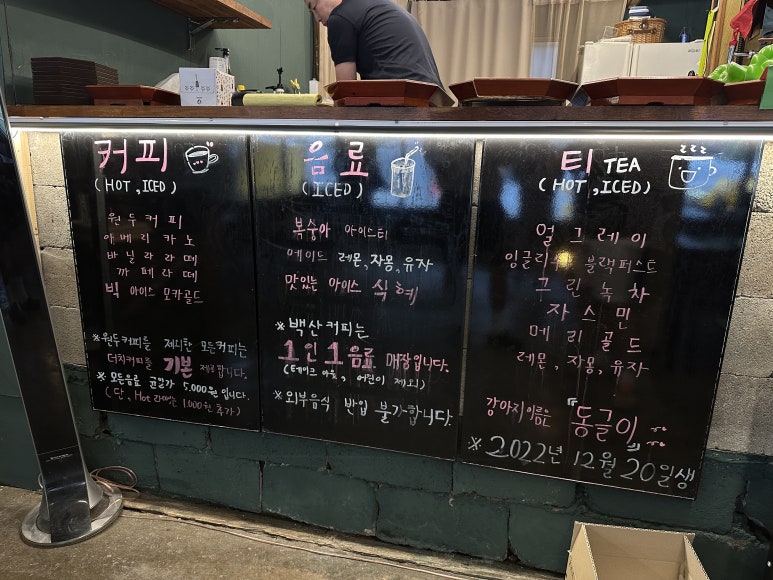 커피
(HOT, ICED)
원두커피
아메리카노
바닐라라떼
까페라떼
빅 아이스 모카골드
※원두커피를 제외한 모든커피는
더치커피를 기본 제공합니다.
※ 모든음료 균일가 5,000원 입니다.
(단, Hot 라떼는 1,000원 추가)
음료
(ICED)
복숭아 아이스티
에이드 레몬, 자몽, 유자
맛있는 아이스 식혜
※백산커피는
1인 1음료 매장입니다.
(테이크 아웃, 어린이 제외)
※외부음식 반입 불가합니다.
티 TEA
(HOT, ICED)
얼그레이
잉글리쉬 블랙퍼스트
구린녹차
자스민
메리골드
레몬, 자몽, 유자
강아지이름은 "동글이"
※2022년 12월 20일생